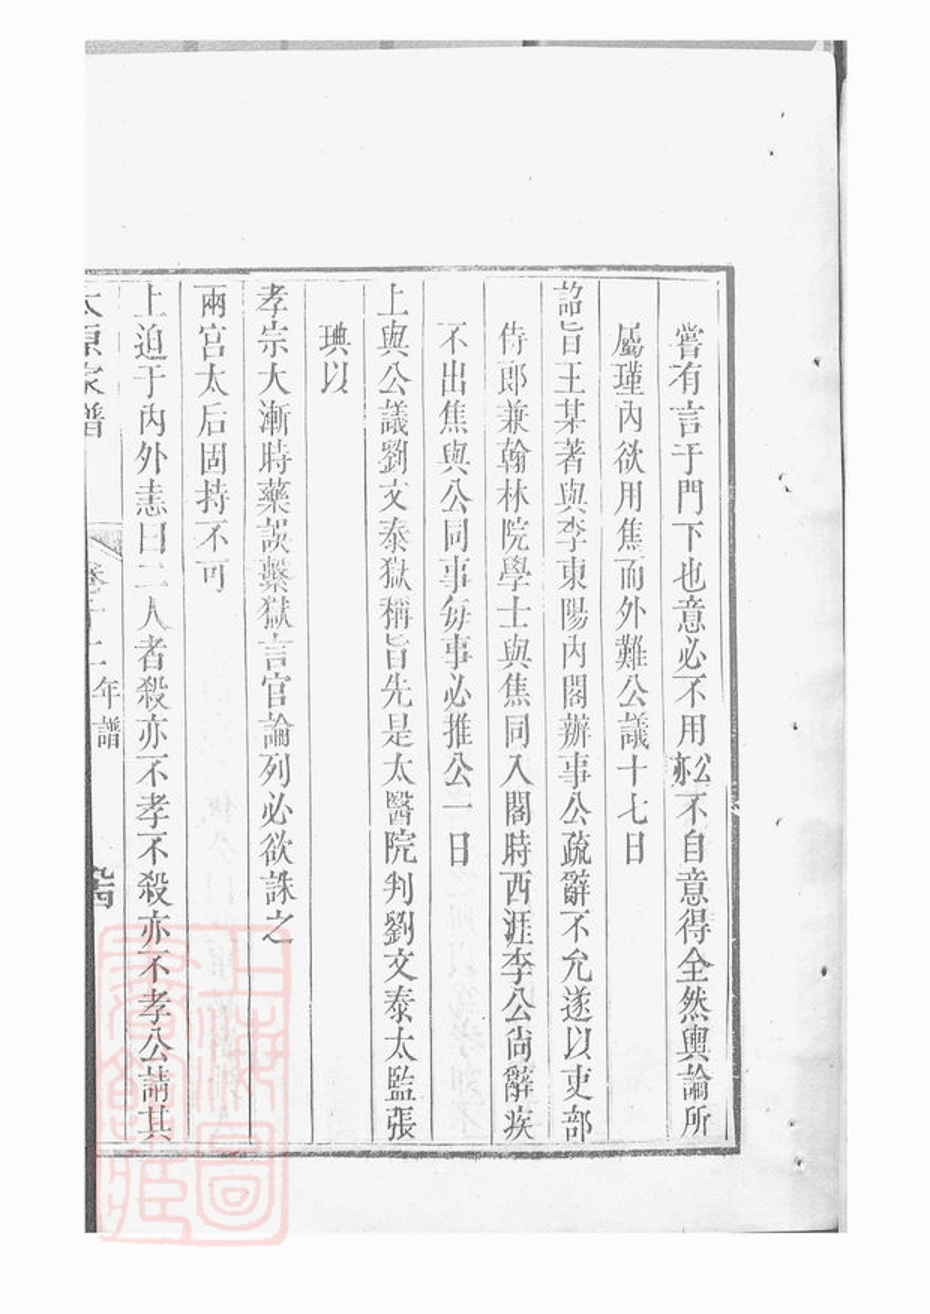 嘗有言于門下也意必不用公亦不自意得全然輿論所
屬瑾內欲用焦而外難公議十七日
詔旨王某著與李東陽內閣辦事公疏辭不允遂以吏部
侍郎兼翰林院學士與焦同入閣時西涯李公尚辭疾
不出焦與公同事每事必推公一日
上與公議劉文泰獄稱旨先是太醫院判劉文泰太監張
㻞以
孝宗大漸時藥誤繫獄言官論列必欲誅之
兩宮太后固持不可
上迫于內外恚曰二人者殺亦不孝不殺亦不孝公請其
太原家譜
卷十二
年譜
上海圖書館藏